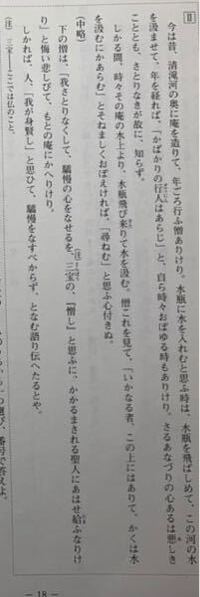 Ⅱ
今は昔、清滝河の奥に庵を造りて、年ごろ行ふ僧ありけり。水瓶に水を入れむと思ふ時は、水瓶を飛ばしめて、この河の水
を汲ませて、年を経れば、「かばかりの行人はあらじ」と、自ら時々おぼゆる時もありけり。さるあなづりの心あるは悪しき
こととも、さとりなきが故に、知らず。
しかる間、時々その庵の水上より、水瓶飛び来りて水を汲む。僧これを見て、「いかなる者、この上にはありて、かくは水
を汲むにかあらむ」とそねましくおぼえければ、「尋ねむ」と思ふ心付きぬ。
(中略)
下の僧は、「我さとりなくして、驕慢の心をなせるを、三宝の、『憎し』と思ふに、かかるまされる聖人にあはせ給ふなりけ
り」と悔い悲しびて、もとの庵にかへりけり。
しかれば、人、「我が身賢し」と思ひて、驕慢をなすべからず、となむ語り伝へたるとや。
(注) 三宝――ここでは仏のこと。
番号で答えよ。
― 18 ―